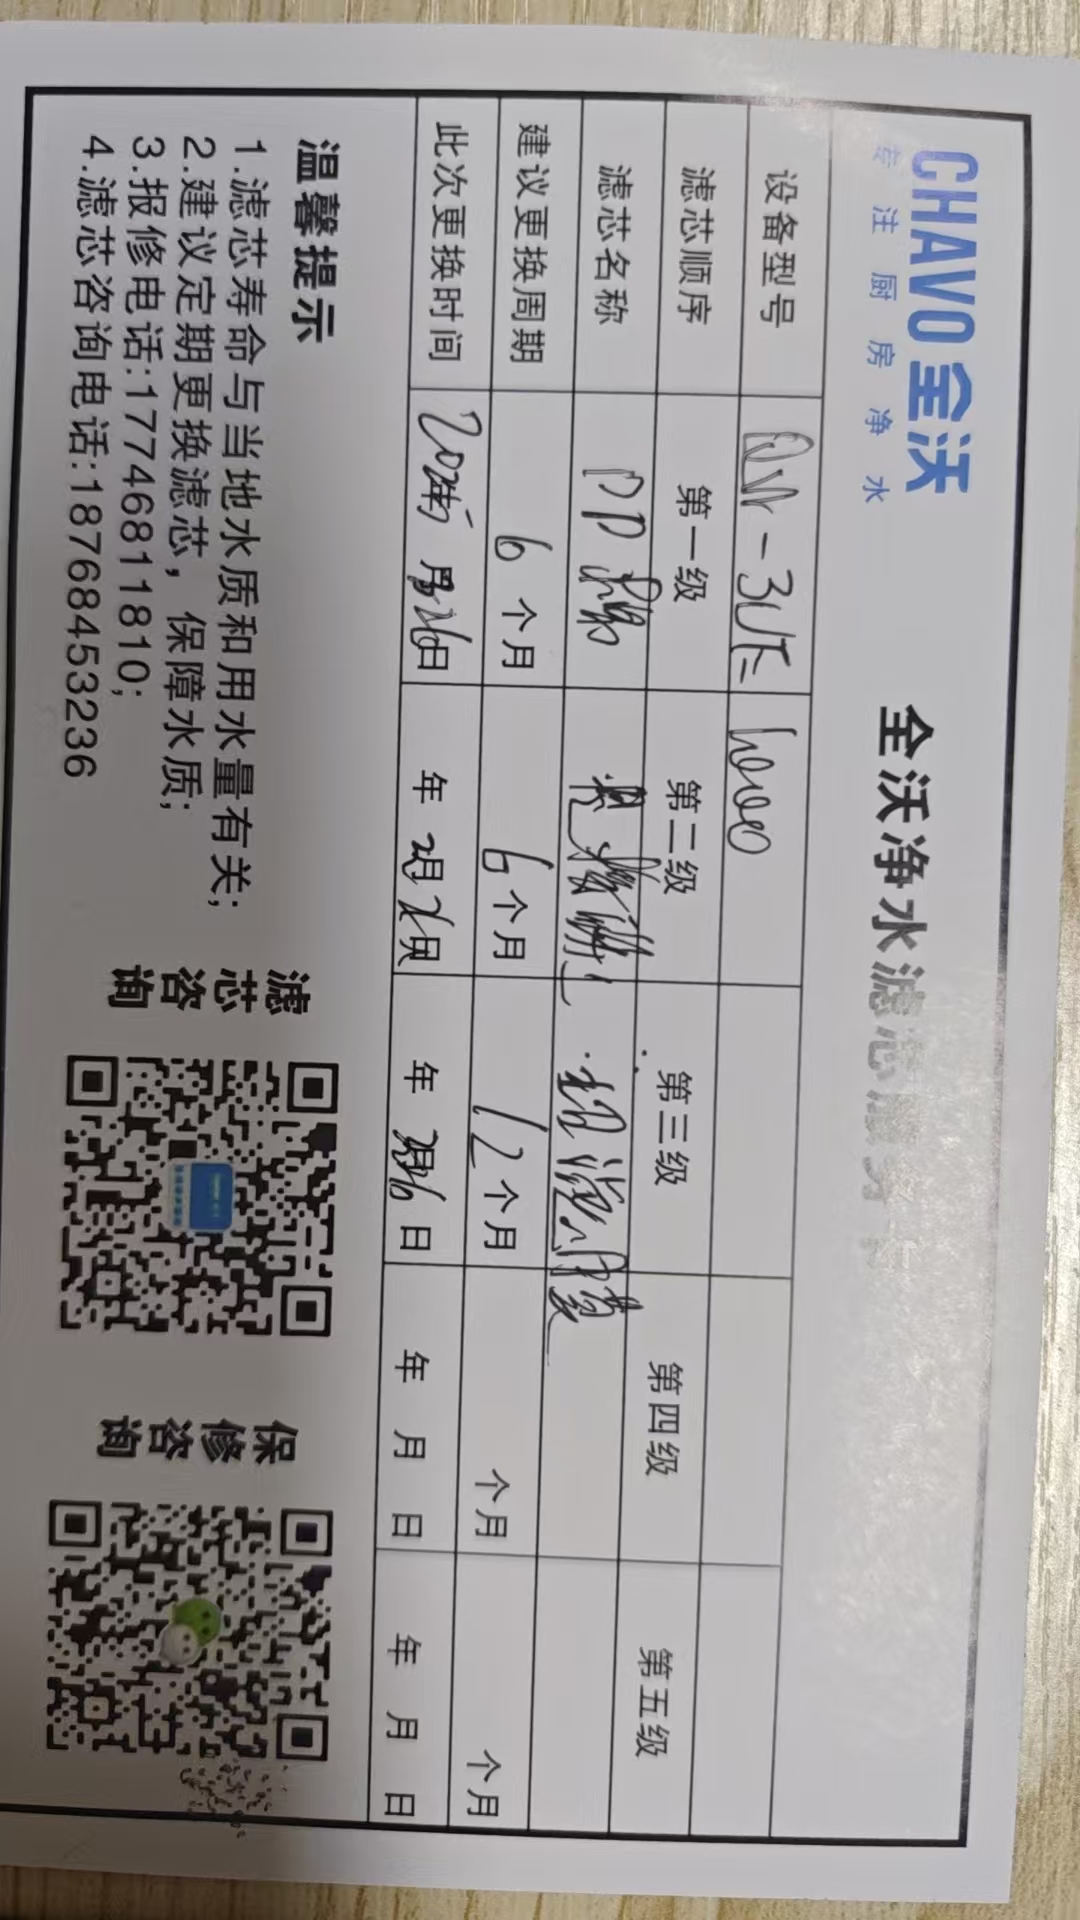 CHAVO 全沃
专注厨房净水
全沃净水滤芯服务卡
设备型号
滤芯顺序 第一级 第二级 第三级 第四级 第五级
滤芯名称 PP棉
建议更换周期 6个月 6个月 12个月 个月 个月
此次更换时间 日 年2月26日 年2月26日 年 月 日 年 月 日
温馨提示
1.滤芯寿命与当地水质和用水量有关;
2.建议定期更换滤芯，保障水质;
3.报修电话:17746811810;
4.滤芯咨询电话:18768453236
滤芯咨询
保修咨询